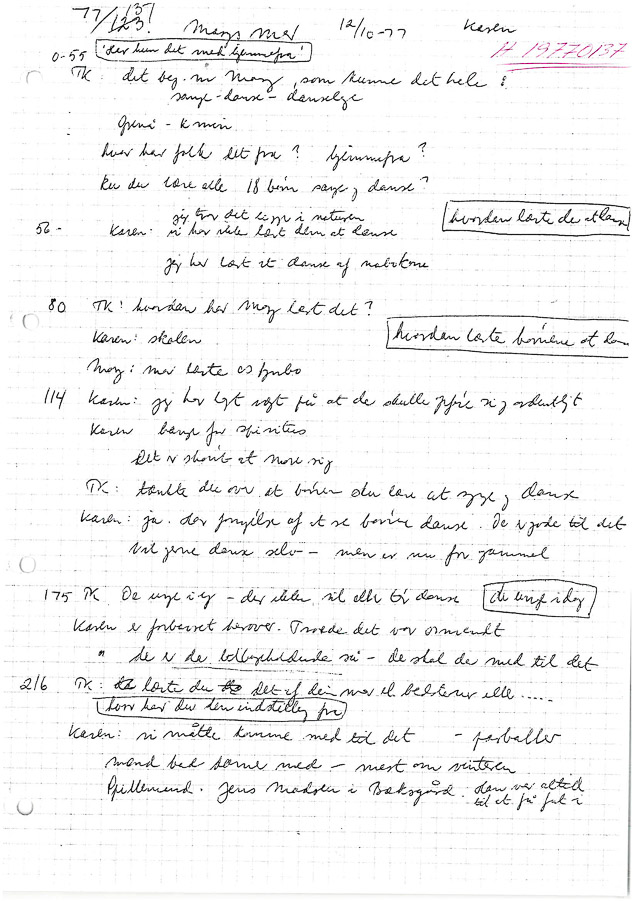 77/151
123!
Mays mor 12/10-77 Karen
H 19770137
0-55 "der kun det med hjemmefra"
TK: det beg. m May, som kunne det hele:
sange - danse - danselege
hvor har folk det fra? hjemmefra?
lære alle 18 børn synge og danse?
jeg tror det ligger i naturen
hvordan lærte de at danse
56 - Karen: vi har ikke lært dem at danse
jeg har lært at danse af nabokone
80 TK: hvordan har May lært det?
hvordan lærte børnene at dan
Karen: skolen
May: mor lærte os
114 Karen: jeg har lagt vægt på at de skulle opføre sig ordentligt
Karen bange for spiritus
Det er skønt at more sig
TK: tænkte du over at børnene skulle lære at synge og danse
Karen: ja. stor fornøjelse af at se børnene danse. De er gode til det
vil gerne danse selv - men er nu for gammel
175 TK De unge i dag - der ikke vil eller tør danse
de unge i dag
Karen er forbavset herover. Troede det var omvendt
" de er de tilbageholdende si - de skal da med til det
216 TK: lærte du det af din mor el. bedsteforældre eller .....
hvor har du den indstilling fra
Karen: vi måtte komme med til det -
mand bad børne med - mest om vinteren
Spillemand. Jens Madsen i Bæksgård. han var altid
til at få fat i